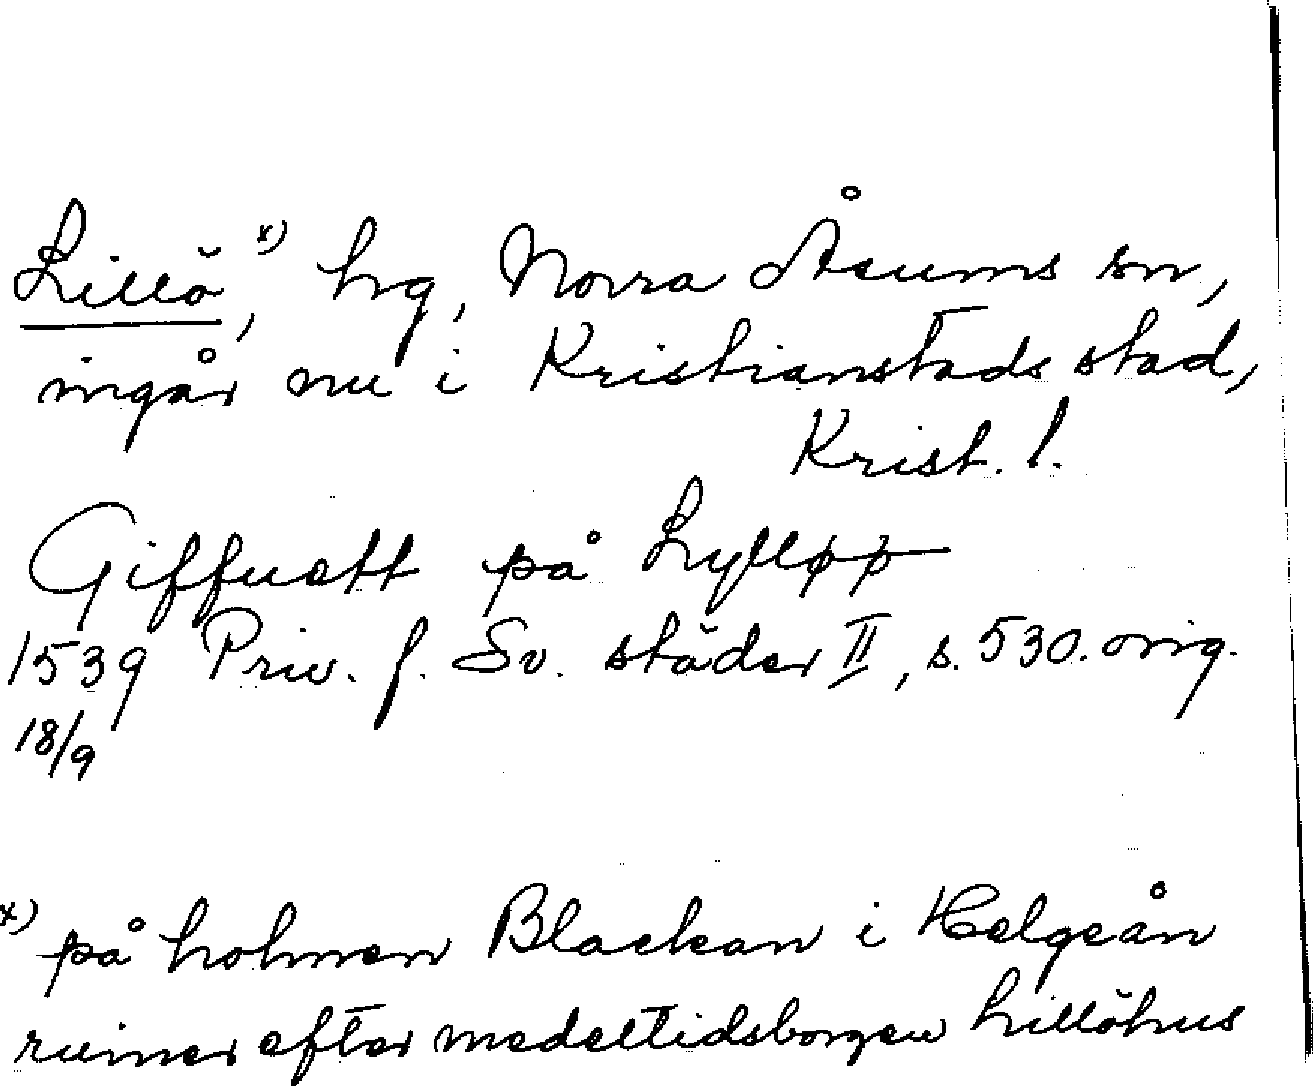 Lillö x), hg, Norra Åsums sn,
ingår nu i Kristianstads stad,
Krist. l.
Giffuett på Lylløø
1539 Priv. f. Sv. städer II, s. 530. orig.
18/9
x) på holmen Blackan i Helgeån
ruiner efter medeltidsborgen Lillöhus